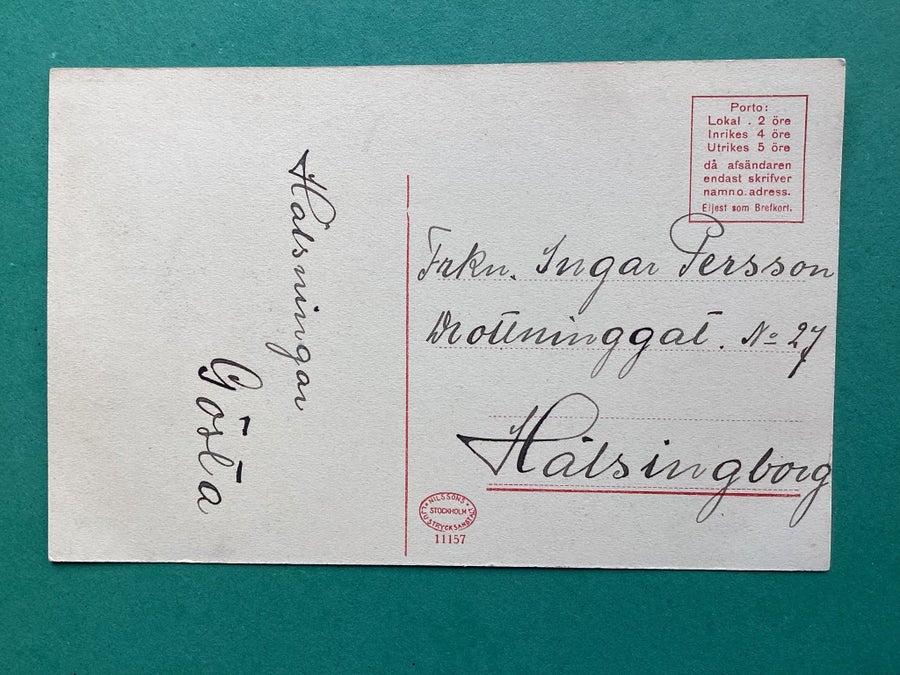 Hälsningar
Gösta
Porto:
Lokal . 2 öre
Inrikes 4 öre
Utrikes 5 öre
då afsändaren
endast skrifver
namn o. adress.
Eljest som Brefkort.
Frkn. Ingar Persson
Drottninggat. No 27
Hälsingborg
NILSSONS
STOCKHOLM
LJUSTRYCKSANSTALT
11157